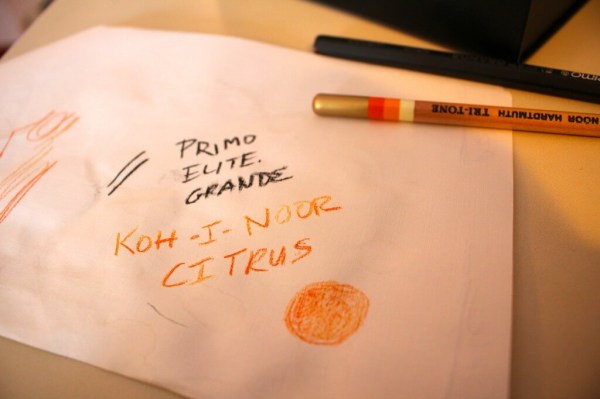 PRIMO
ELITE.
GRANDE
KOH-I-NOOR
CITRUS
NOOR HARDTMUTH TRI-TONE